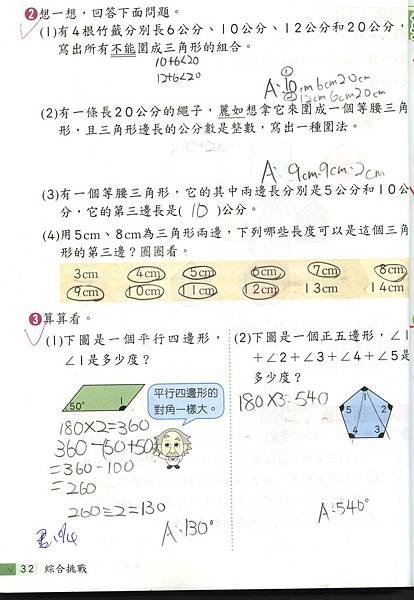 ❷想一想，回答下面問題。
(1)有4根竹籤分別長6公分、10公分、12公分和20公分，
寫出所有不能圍成三角形的組合。
10+6<20
12+6<20
A:①10cm6cm20cm
②12cm6cm20cm
(2)有一條長20公分的繩子，麗如想拿它來圍成一個等腰三角
形，且三角形邊長的公分數是整數，寫出一種圍法。
A: 9cm.9cm.2cm
(3)有一個等腰三角形，它的其中兩邊長分別是5公分和10公
分，它的第三邊長是( 10 )公分。
(4)用5cm、8cm為三角形兩邊，下列哪些長度可以是這個三角
形的第三邊？圈圈看。
3cm 4cm 5cm 6cm 7cm 8cm
9cm 10cm 11cm 12cm 13cm 14cm
❸算算看。
(1)下圖是一個平行四邊形，
∠1是多少度？
50° 1
平行四邊形的
對角一樣大。
180×2=360
360-(50+50)
=360-100
=260
260÷2=130
A:130°
(2)下圖是一個正五邊形，∠1
+∠2+∠3+∠4+∠5是
多少度？
180×3=540
1 5 2 4 3
A:540°
32 綜合挑戰